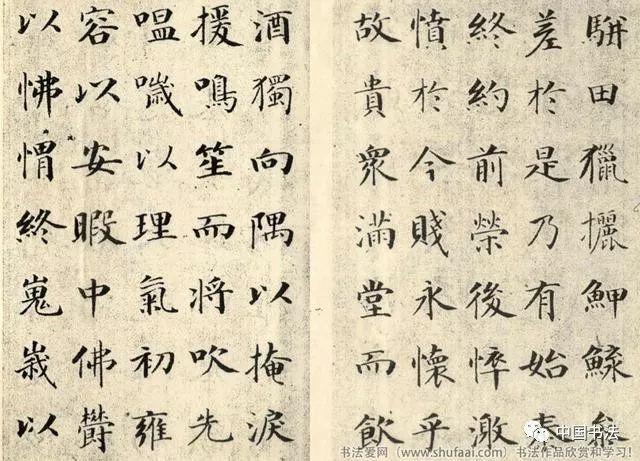 駢田獵攦魻鰈參
差於是乃有始泰
終約前榮後悴激
憤於今賤永懷乎
故貴衆滿堂而飲
酒獨向隅以掩淚
援鳴笙而將吹先
嗢噦以理氣初雍
容以安暇中佛欎
以怫愲終嵬峩以
中国书法
书法爱网（www.shufaai.com）书法作品欣赏和学习！